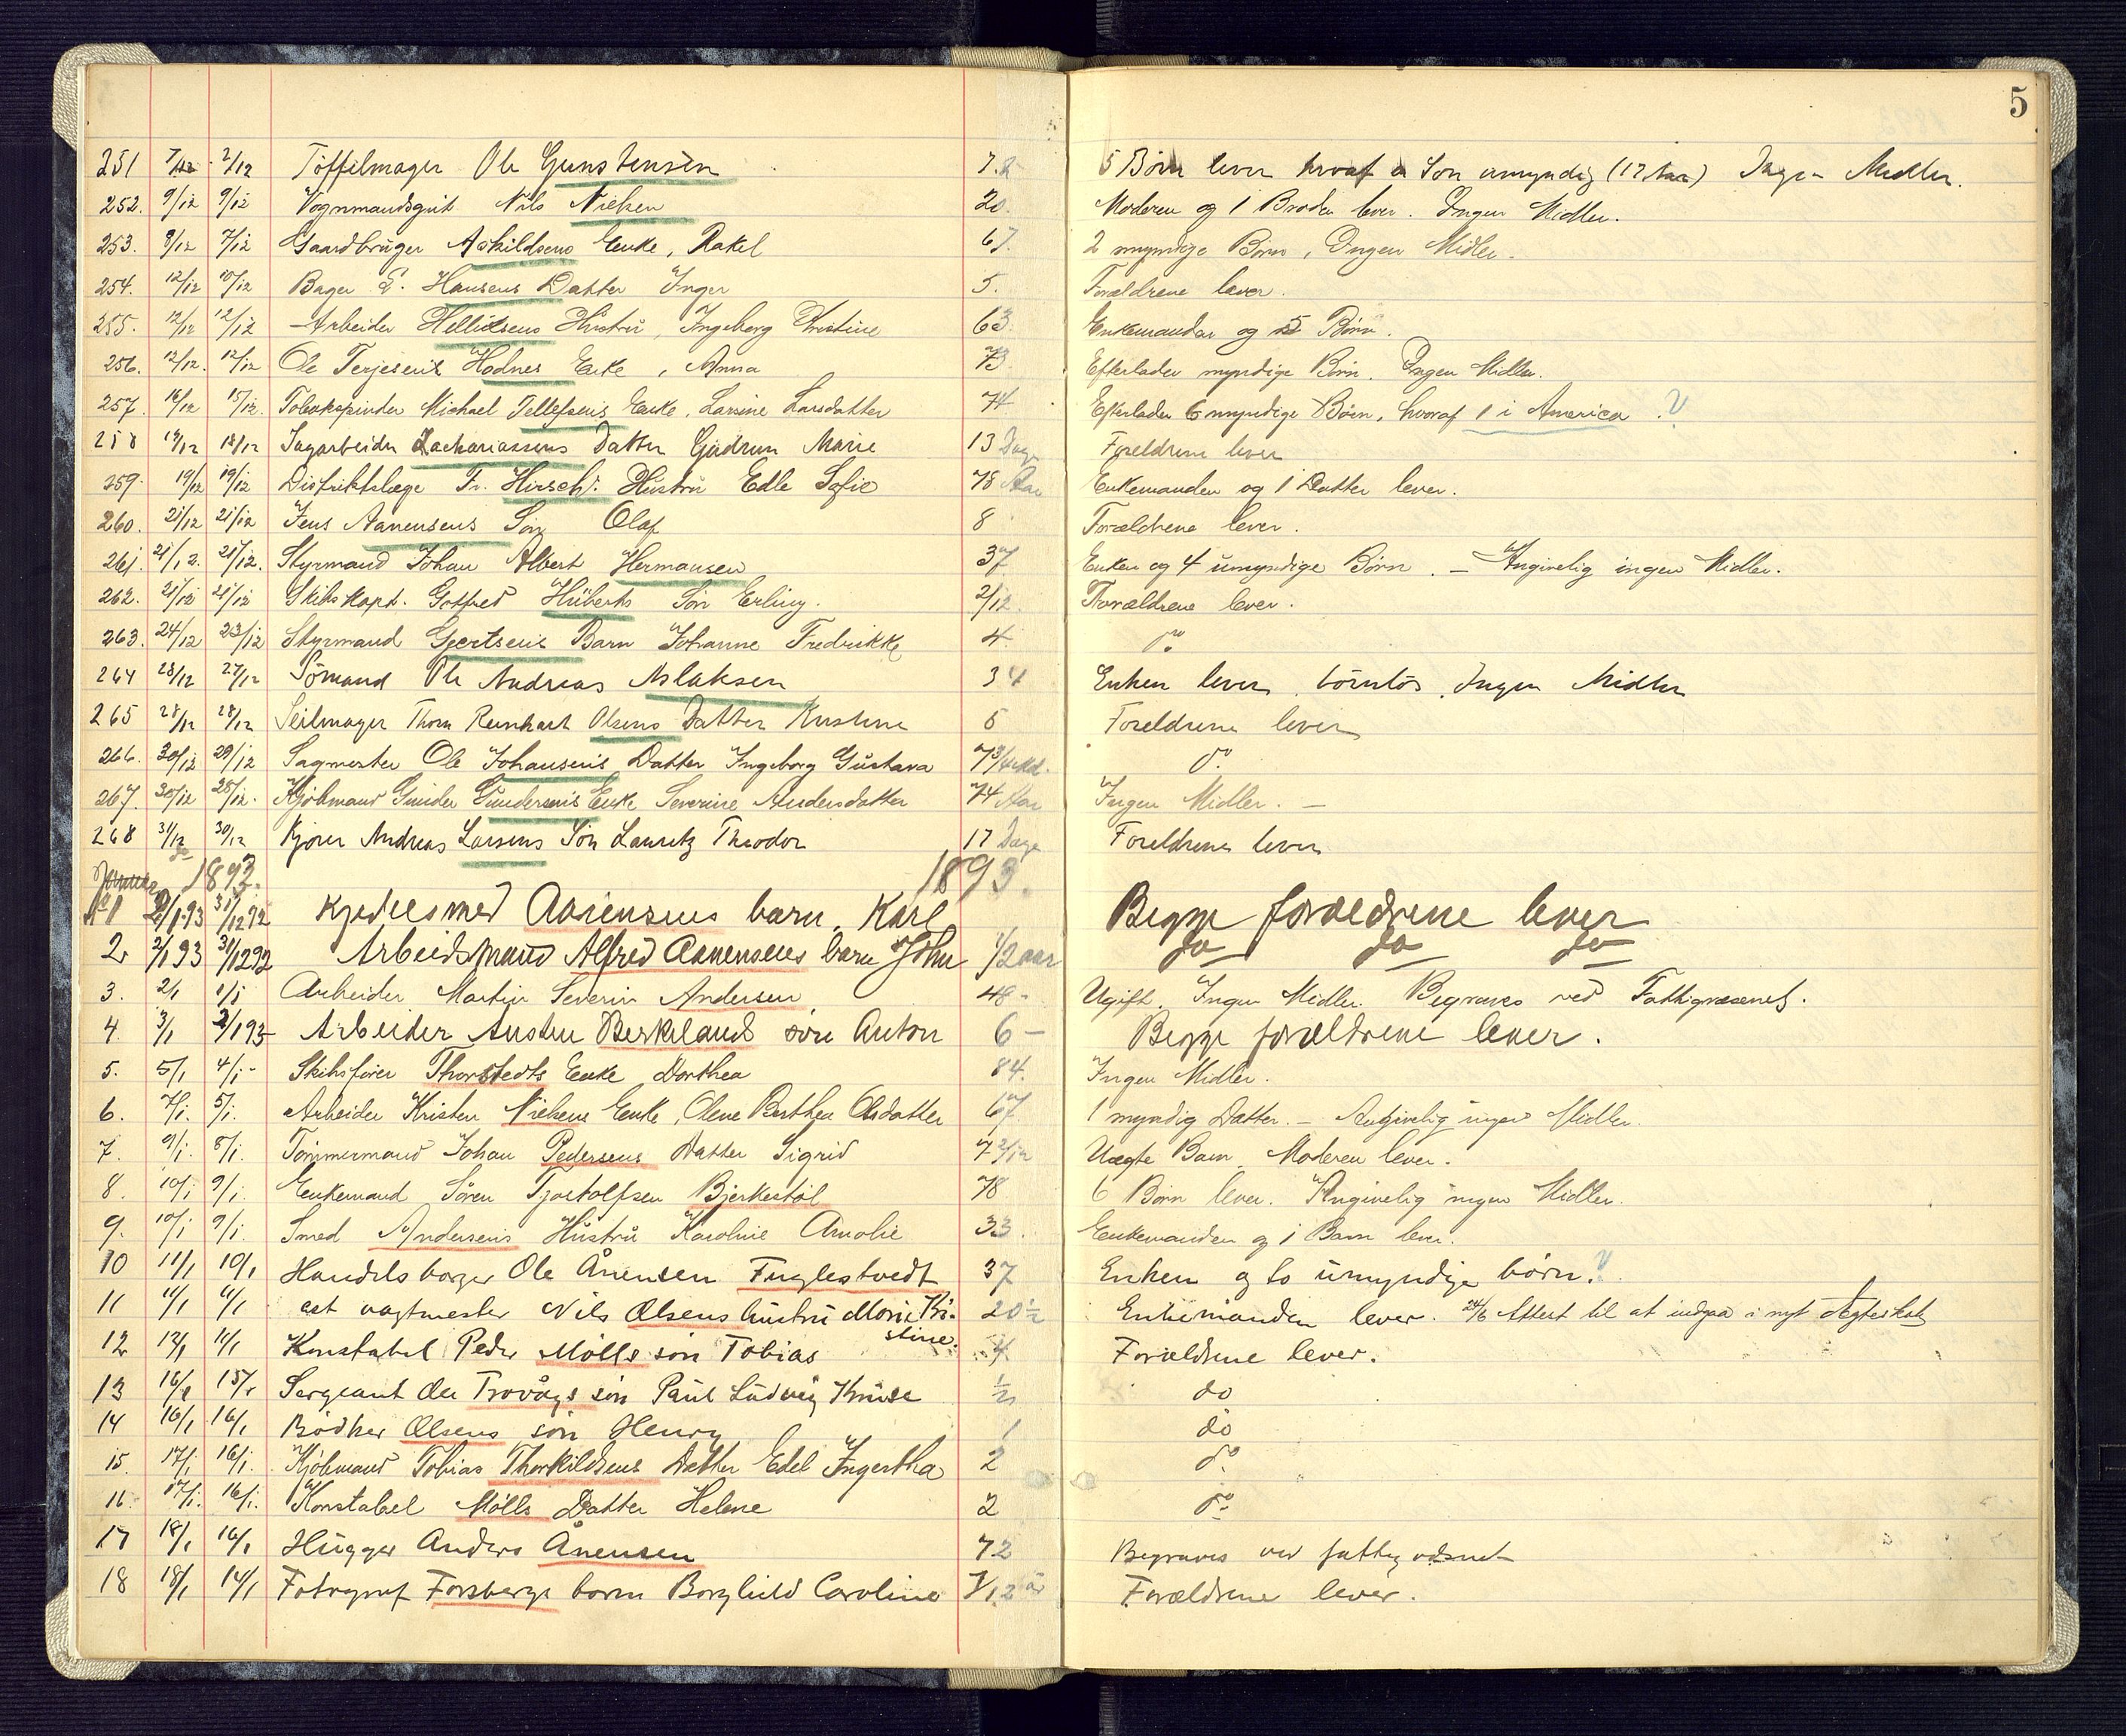 5
251 7/12 2/12 Töffelmager Ole Gunstensen 72 5 Börn lever hvoraf en Sön umyndig (17 Aar) Ingen Midler.
252. 9/12 9/12 Vognmandsgut Nils Nielsen 20. Moderen og 1 Broder lever. Ingen Midler.
253. 9/12 7/12 Gaardbruger Askildsens Enke, Rakel 67. 2 myndige Börn, Ingen Midler.
254. 12/12 10/12 Bager E. Hansens Datter Inger 5. Forældrene lever.
255. 12/12 12/12 Arbeider Hellidsens Hustru, Ingeborg Kristine 63. Enkemanden og 5 Börn.
256. 12/12. 12/12 Ole Terjesens Hodnes Enke, Anna 73 Efterlader myndige Börn. Ingen Midler.
257. 16/12 15/12. Tobakspinder Michael Tellefsens Enke, Larsine Larsdatter 74. Efterlader 6 myndige Börn, hvoraf 1 i America.
258 19/12 18/12 Sagarbeider Zachariassens Datter Gudrun Marie 13 Dage Foreldrene lever
259. 19/12 19/12 Distriktslæge Fr. Hirsch's Hustru Edle Sofie 78 Aar Enkemanden og 1 Datter lever.
260. 21/12 21/12 Jens Aanensens Sön Olaf 8 Forældrene lever.
261. 21/12. 21/12. Styrmand Johan Albert Hermansen 37 Enken og 4 umyndige Börn. — Angivelig ingen Midler.
262. 21/12 21/12 Skibskapt. Gotfred Hüberts Sön Erling. 2/12. Forældrene lever.
263. 24/12 23/12 Styrmand Geertsens Barn Johanne Fredrikke 4. do
264 28/12 27/12 Sömand Ole Andreas Aslaksen 34 Enken lever, börnlös, Ingen Midler
265 28/12 28/12 Seilmager Thom Reinhart Olsens Datter Kristine 5 Foreldrene lever
266. 30/12 29/12 Sagmester Ole Johansens Datter Ingeborg Gustava 7 3/4 Md. do.
267. 30/12 28/12. Kjöbmand Gunder Gundersens Enke Severine Andersdatter 74 Aar Ingen Midler. —
268 31/12 30/12 Kjörer Andreas Larsens Sön Lauritz Theodor 17 Dage Foreldrene lever
Januar 1893. 1893.
No 1 2/1 93 31/12 92 Kjedelsmed Aanensens barn, Karl Begge forældrene lever
2 2/1 93 31/12 92 Arbeidsmand Alfred Aanensens barn John 1/2 aar do do do
3. 2/1 1/1 Arbeider Martin Severin Andersen 48 - Ugift. Ingen Midler. Begraves ved Fattigvæsenet.
4. 3/1 2/1 93 Arbeider Austen Berkelands sön Anton 6 — Begge forældrene lever.
5. 5/1 4/1 - Skibsförer Thorstedts Enke Dorthea 84. Ingen Midler.
6. 7/1. 5/1. Arbeider Kristen Nielsens Enke, Olene Berthea Olsdatter 67 1 myndig Datter. — Angivelig ingen Midler.
7. 9/1. 8/1. Tömmermand Johan Pedersens Datter Sigrid 7 2/12 Uægte Barn. Moderen lever.
8. 10/1 9/1. Enkemand Sören Tjostolfsen Bjerkestöl 78 6 Börn lever. Angivelig ingen Midler.
9. 10/1 9/1. Smed Andersens Hustru Karoline Amalie 33. Enkemanden og 1 Barn lever.
10 11/1 10/1 Handelsborger Ole Ånensen Fuglestvedt 37 Enken og to umyndige börn.
11 11/1 11/1 cst vagtmester Nils Olsens hustru Marie Kri- 20 1/2 Enkemanden lever. 24/6 Attest til at indgaa i nyt Ægteskab
stine.
12 12/1 11/1 Konstabel Peder Mölls sön Tobias 4 Forældrene lever.
13 16/1 15/1 Sergeant Ole Trovågs sön Paul Ludvig Kruse 1/2 do
14 16/1 16/1 Bödker Olsens sön Henry 1 do
15. 17/1 16/1. Kjöbmand Tobias Thorkildsens Datter Edel Ingertha 2 do.
16. 17/1. 16/1. Konstabel Mölls Datter Helene 2 do.
17 18/1 16/1 Hugger Anders Ånensen 72 Begraves ved fattigvæsnet
18 18/1 14/1 Fotograf Forsbergs barn Borghild Caroline 7/12 år Forældrene lever.